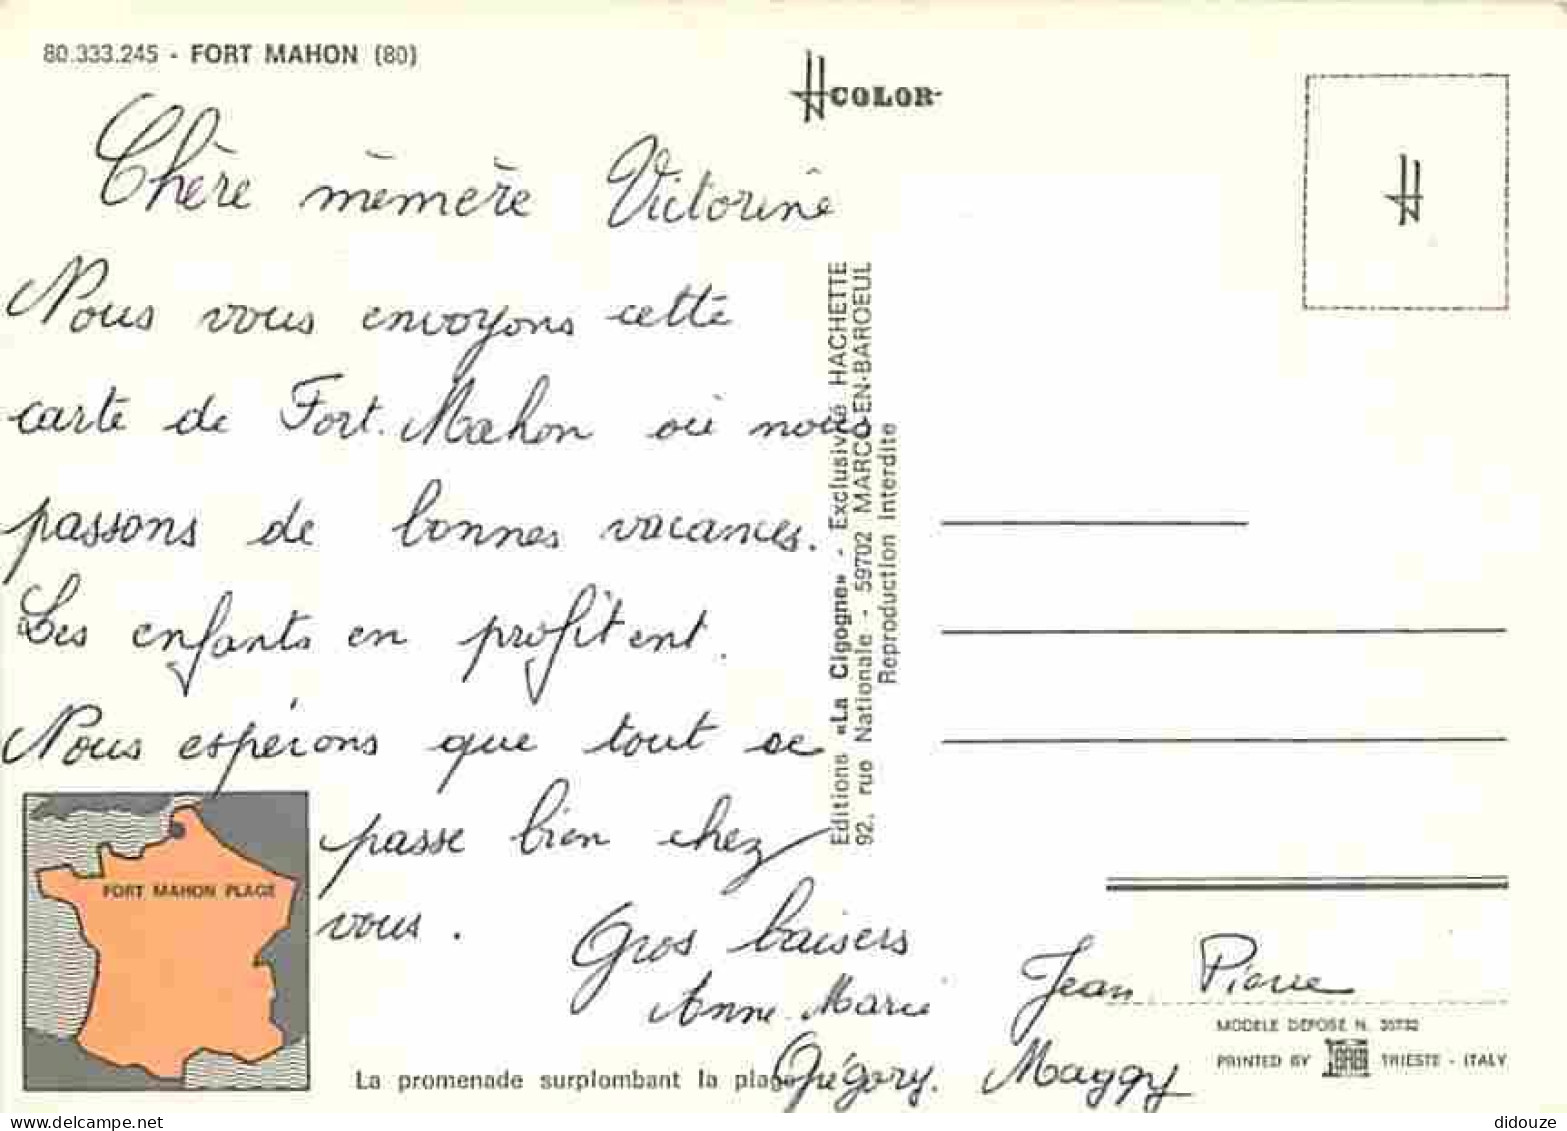 80.333.245 - FORT MAHON (80)
COLOR
Chère mèmère Victorine
Nous vous envoyons cette
carte de Fort. Mahon où nous
passons de bonnes vacances.
Les enfants en profitent.
Nous espérons que tout se
passe bien chez
vous.
Gros baisers
Anne-Marie Jean Pierre
Grégory. Maggy
FORT MAHON PLAGE
La promenade surplombant la plage
Editions «La Cigogne» - Exclusivité HACHETTE
92, rue Nationale - 59702 MARCQ-EN-BAROEUL
Reproduction Interdite
MODELE DEPOSE N. 35732
PRINTED BY TRIESTE - ITALY
didouze